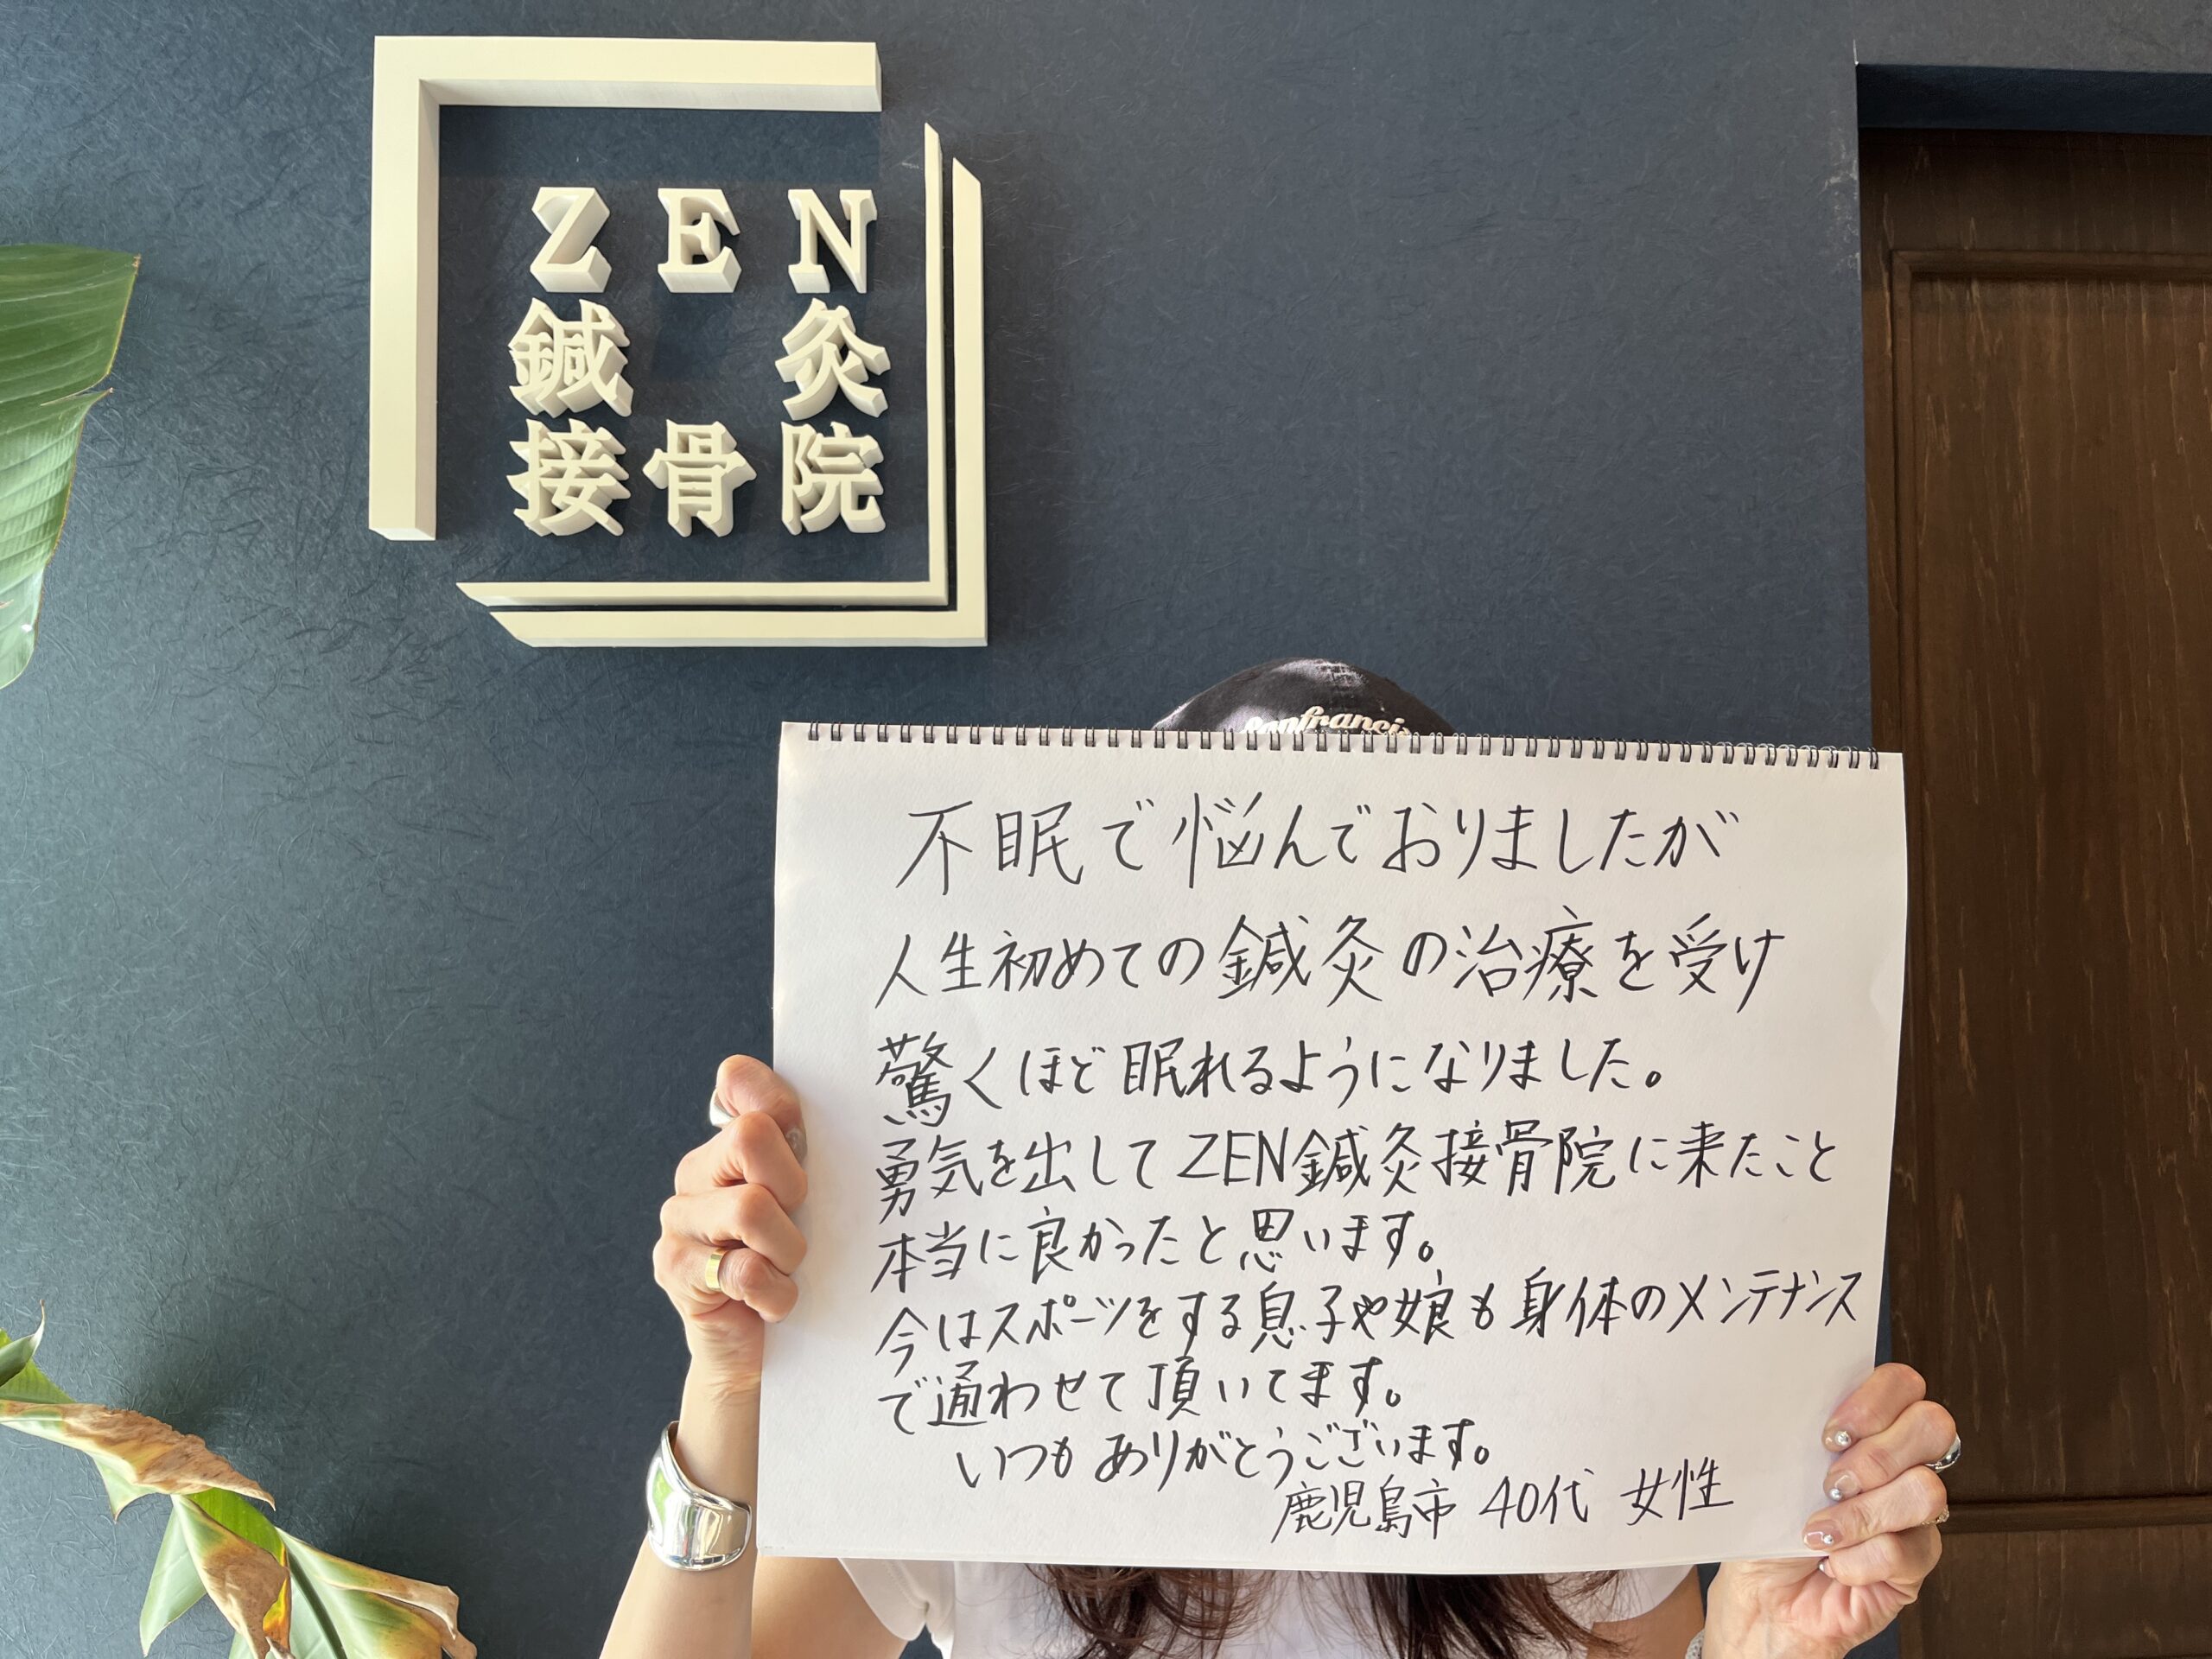 ZEN
鍼灸
接骨院
不眠で悩んでおりましたが
人生初めての鍼灸の治療を受け
驚くほど眠れるようになりました。
勇気を出してZEN鍼灸接骨院に来たこと
本当に良かったと思います。
今はスポーツをする息子や娘も身体のメンテナンス
で通わせて頂いてます。
いつもありがとうございます。
鹿児島市 40代 女性